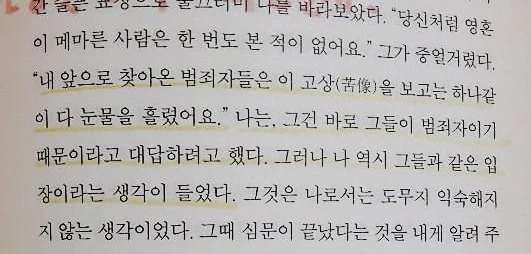 간 슬픈 표정으로 물끄러미 나를 바라보았다. “당신처럼 영혼
이 메마른 사람은 한 번도 본 적이 없어요.” 그가 중얼거렸다.
“내 앞으로 찾아온 범죄자들은 이 고상(苦像)을 보고는 하나같
이 다 눈물을 흘렸어요.” 나는, 그건 바로 그들이 범죄자이기
때문이라고 대답하려고 했다. 그러나 나 역시 그들과 같은 입
장이라는 생각이 들었다. 그것은 나로서는 도무지 익숙해지
지 않는 생각이었다. 그때 심문이 끝났다는 것을 내게 알려 주